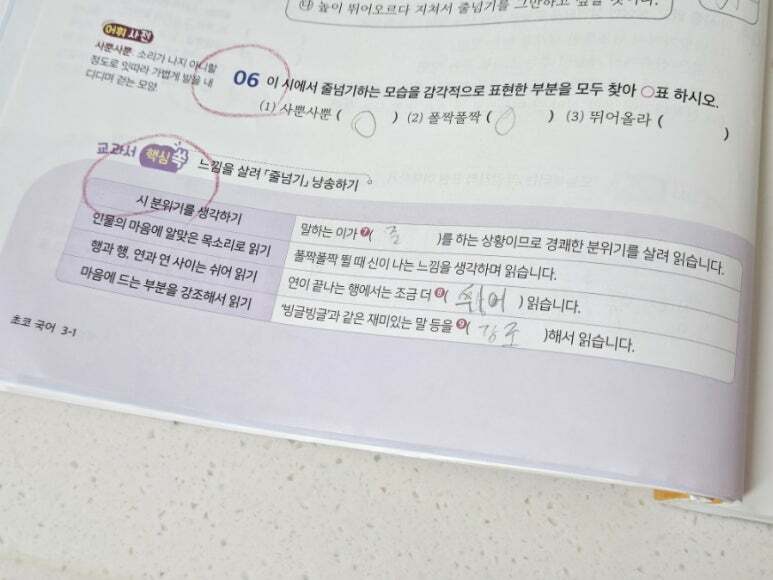 ㉯ 높이 뛰어오르다 지쳐서 줄넘기를 그만하고 싶을 것이다.
어휘 사전
사뿐사뿐. 소리가 나지 아니할
정도로 잇따라 가볍게 발을 내
디디며 걷는 모양.
06 이 시에서 줄넘기하는 모습을 감각적으로 표현한 부분을 모두 찾아 ○표 하시오.
(1) 사뿐사뿐 ( ○ ) (2) 폴짝폴짝 ( ○ ) (3) 뛰어올라 ( )
교과서 핵심 쏙 느낌을 살려 「줄넘기」 낭송하기
시 분위기를 생각하기 말하는 이가 ❼( 줄 )를 하는 상황이므로 경쾌한 분위기를 살려 읽습니다.
인물의 마음에 알맞은 목소리로 읽기 폴짝폴짝 뛸 때 신이 나는 느낌을 생각하며 읽습니다.
행과 행, 연과 연 사이는 쉬어 읽기 연이 끝나는 행에서는 조금 더 ❽( 쉬어 ) 읽습니다.
마음에 드는 부분을 강조해서 읽기 '빙글빙글'과 같은 재미있는 말 등을 ❾( 강조 )해서 읽습니다.
초코 국어 3-1